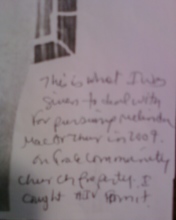 This is what I was
given to deal with
for pursuing Melinda
MacArthur in 2009.
on Gate Community
Church Property. I
caught AIR Permit